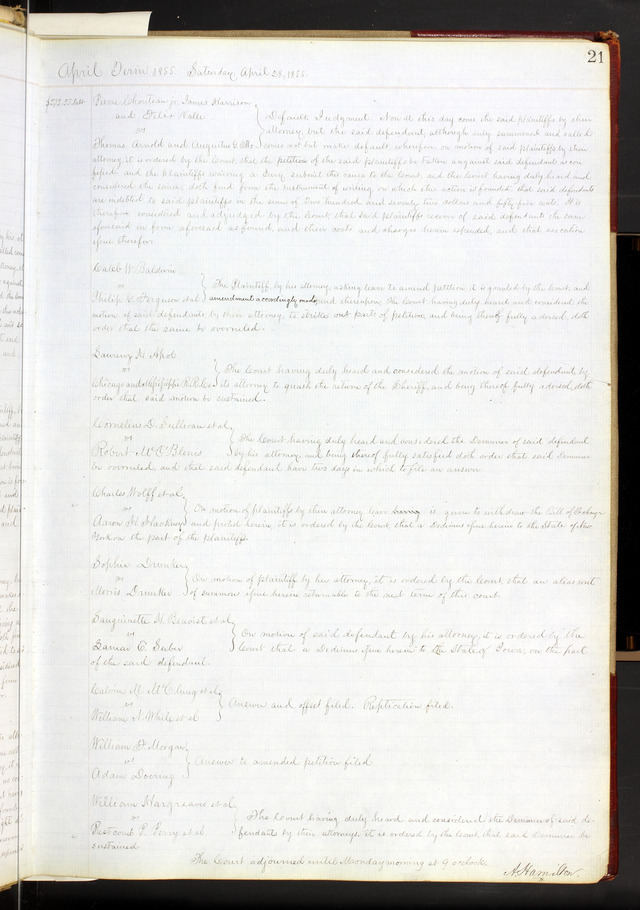 21
April Term 1855. Saturday, April 28, 1855.
$272.55 Debt
Pierre Chouteau jr. James Harrison
and Felix Valle
vs
Thomas Arnold and Augustus
Default Judgment. Now at this day come the said plaintiffs by their
attorney, but the said defendants, although duly summoned and called
come not but make default wherefore on motion of said plaintiffs by their
attorney, it is ordered by the Court, that the petition of the said plaintiffs be taken against said defendants as con
fessed and the plaintiffs waiving a Jury submit the cause to the Court, and the Court having duly heard and
considered the same, doth find from the instrument of writing on which the action is founded, that said defendants
are indebted to said plaintiffs in the sum of two hundred and seventy two dollars and fifty five cents. It is
therefore considered and adjudged by the Court, that said plaintiffs recover of said defendants the sum
aforesaid in form aforesaid as found, and their costs and charges herein expended, and that execution
issue therefor.
Caleb W. Baldwin
vs
Philip C. Ferguson et al
The Plaintiff, by his attorney, asking leave to amend petition it is granted by the Court, and
amendment accordingly made, and thereupon the Court having duly heard and considered the
motion of said defendants by their attorney, to strike out parts of petition, and being thereof fully advised, doth
order that the same be overruled.
vs
Chicago and Mississippi R.R. Co
The Court having duly heard and considered the motion of said defendants by
its attorney to quash the return of the Sheriff, and being thereof fully advised, doth
order that said motion be sustained.
Cornelius D. Sullivan et al
vs
Robert McO'Blenis
The Court having duly heard and considered the Demurrer of said defendant
by his attorney, and being thereof fully satisfied doth order that said Demurrer
be overruled, and that said defendant have two days in which to file an answer.
Charles Wolff et al
vs
Aaron H. Hackney
On motion of plaintiffs by their attorney leave being is given to withdraw the Bill of Exchange
and protest herein, it is ordered by the Court, that a Dedimus issue herein to the State of New
York on the part of the plaintiffs.
Sophia Drunker
vs
Morris Drunker
On motion of plaintiff by her attorney, it is ordered by the Court that an alias writ
of summons issue herein returnable to the next term of this court.
Sanguinette H. Benoist et al
vs
On motion of said defendant by his attorney, it is ordered by the
Court that a Dedimus issue herein to the State of Iowa, on the part
of the said defendant.
Calvin M. McClung et al
vs
William N. White et al
Answer and offset filed. Replication filed.
William D. Morgan
vs
Adam Doering
Answer to amended petition filed
William Hargreaves et al
vs
Perry et al
The Court having duly heard and considered the Demurrer of said de-
fendants by their attorneys, it is ordered by the Court that said Demurrer be
sustained
The Court adjourned until Monday morning at 9 o'clock
A. Hamilton.